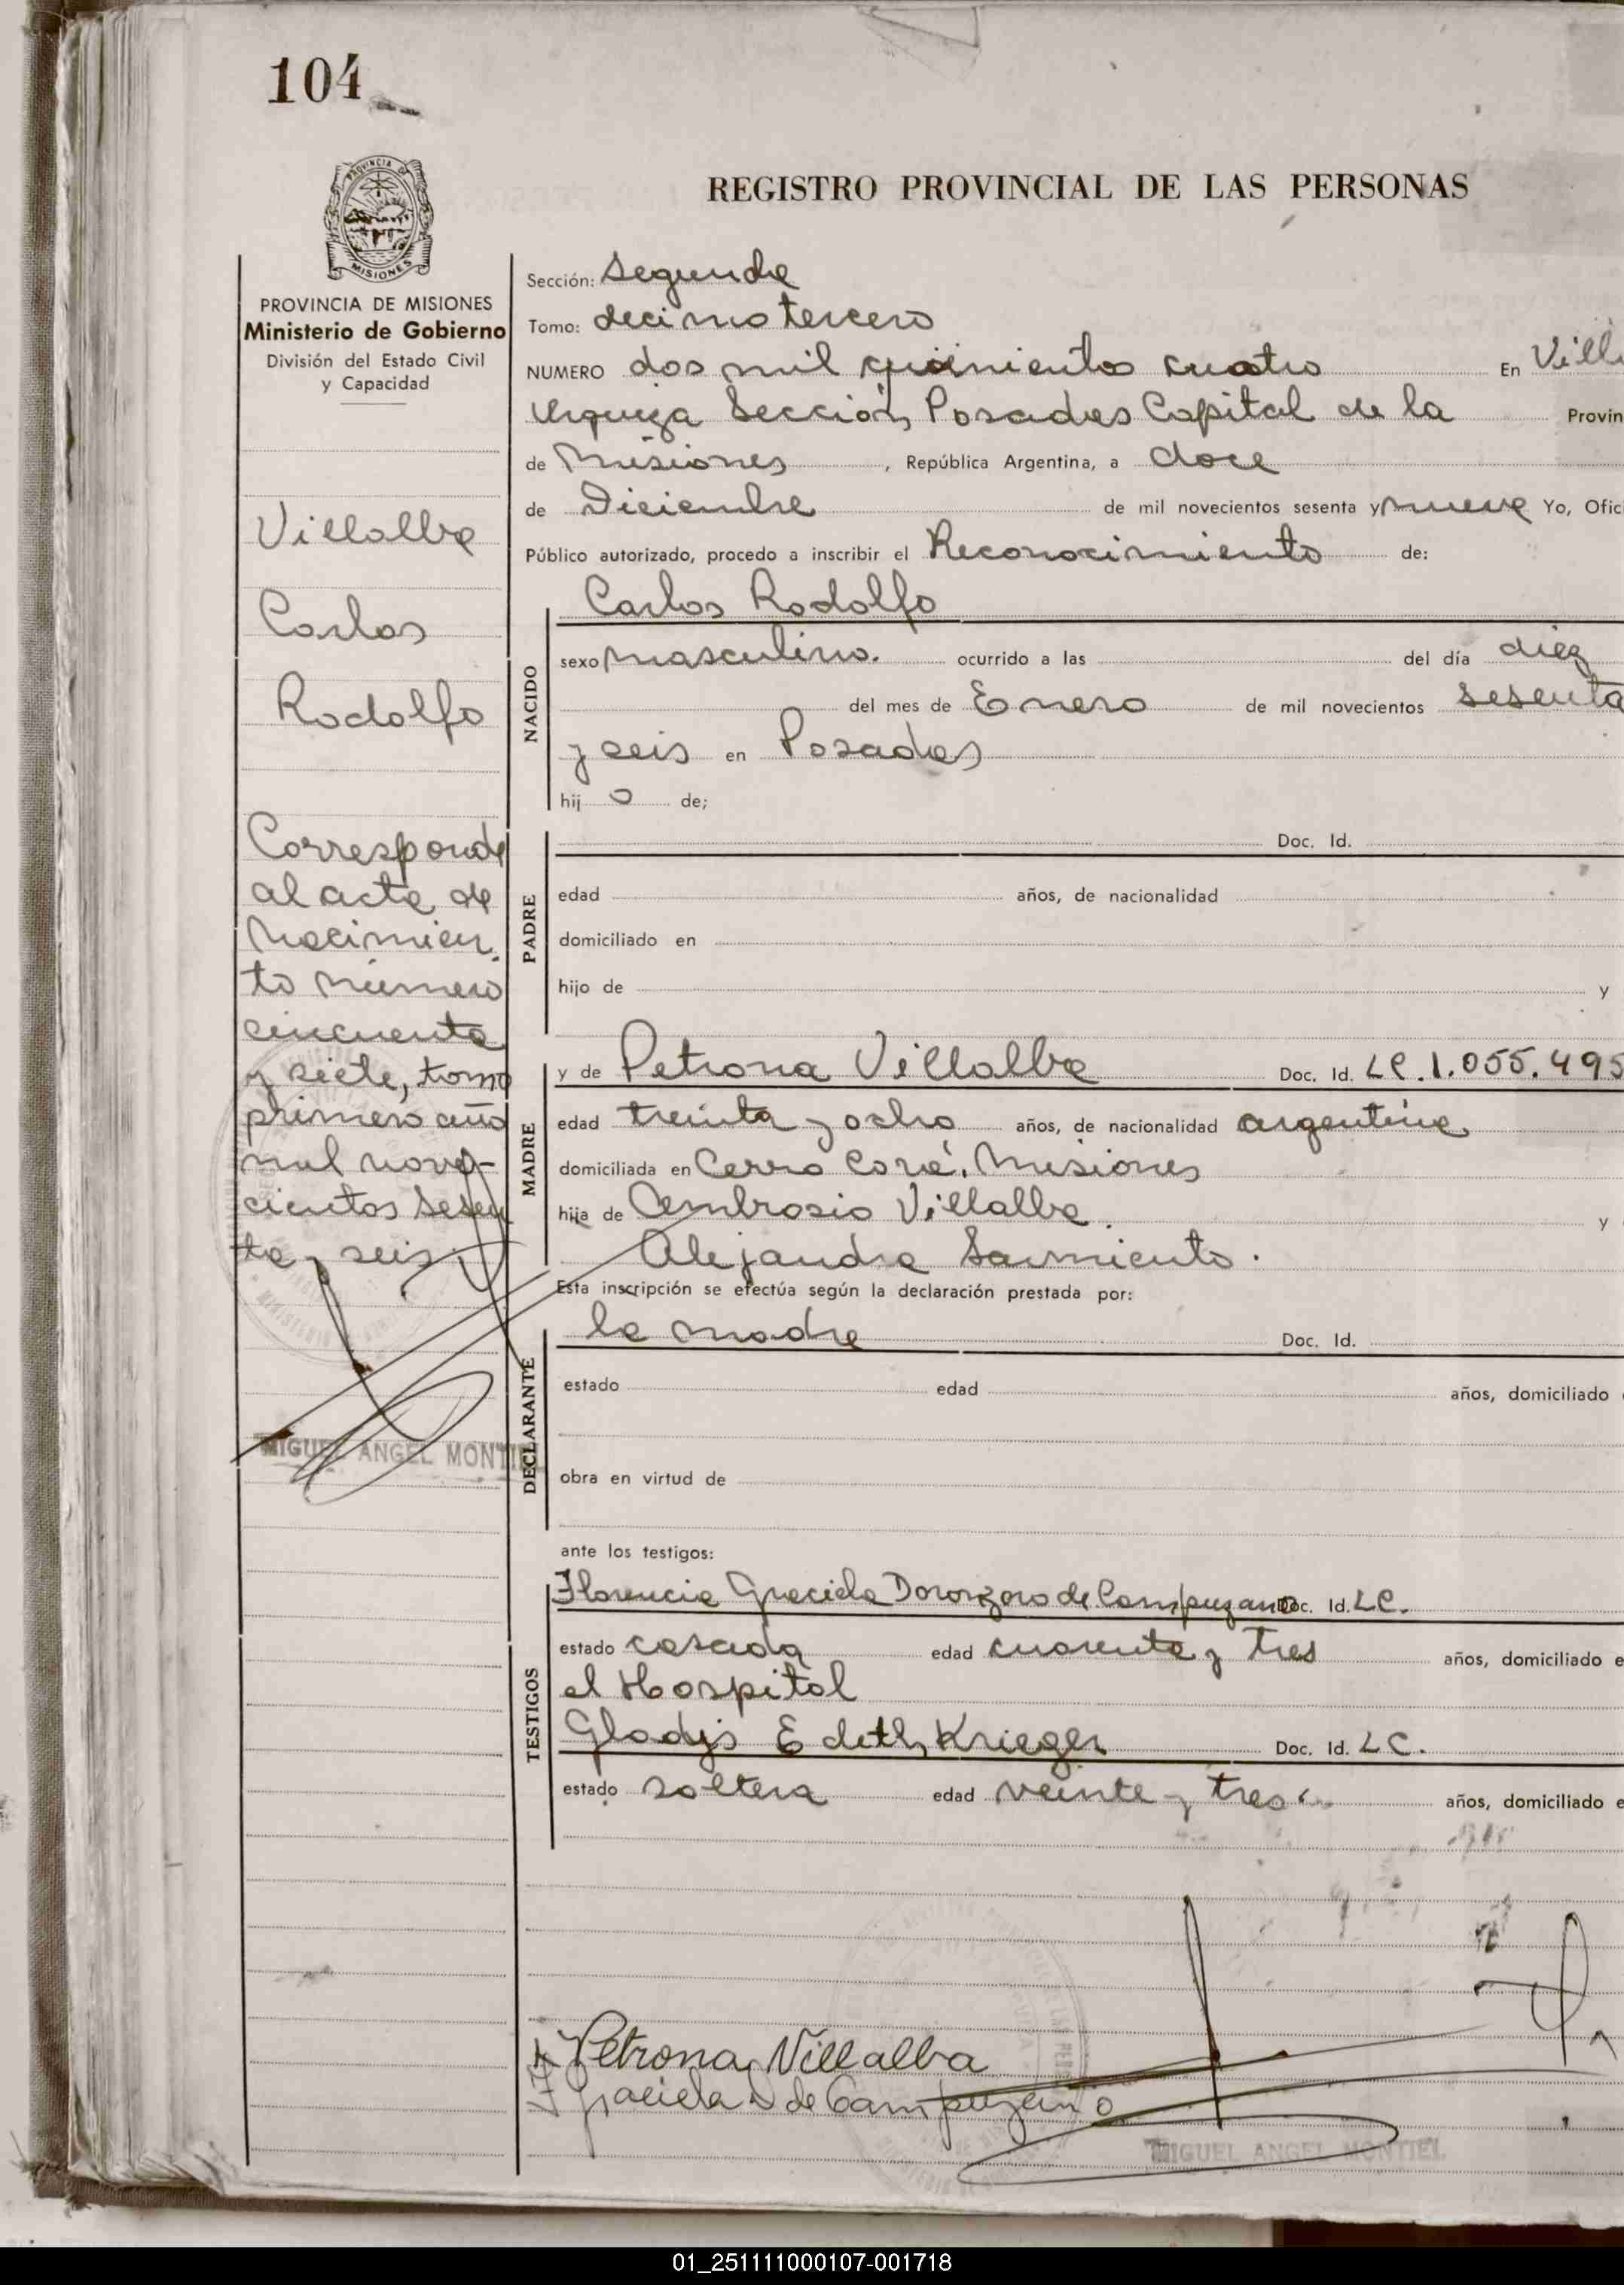 104
REGISTRO PROVINCIAL DE LAS PERSONAS
PROVINCIA DE
MISIONES
PROVINCIA DE MISIONES
Ministerio de Gobierno
División del Estado Civil
y Capacidad
Villalba
Carlos
Rodolfo
Corresponde
al acta de
Nacimien-
to número
cincuenta
y siete, tomo
primero año
mil nove-
cientos sesen
ta y seis
MIGUEL ANGEL MONTIEL
Sección: Segunda
Tomo: decimo tercero
NUMERO dos mil quinientos cuatro En Vill
Urquiza Sección Posadas Capital de la Provin
de Misiones, República Argentina, a doce
de Diciembre de mil novecientos sesenta y nueve Yo, Ofic
Público autorizado, procedo a inscribir el Reconocimiento de:
NACIDO
Carlos Rodolfo
sexo masculino. ocurrido a las del día diez
del mes de Enero de mil novecientos sesenta
y seis en Posadas
hij o de;
PADRE
Doc. Id.
edad años, de nacionalidad
domiciliado en
hijo de y
MADRE
y de Petrona Villalba Doc. Id. LC. 1.055.495
edad treinta y ocho años, de nacionalidad argentina
domiciliada en Cerro Corá. Misiones
hija de Ambrosio Villalba y
Alejandra Sarmiento.
Esta inscripción se efectúa según la declaración prestada por:
DECLARANTE
la madre Doc. Id.
estado edad años, domiciliado
obra en virtud de
ante los testigos:
TESTIGOS
Florencia Graciela Doronzoro de Campuzano Doc. Id. LC.
estado casada edad cuarenta y tres años, domiciliado e
el Hospital
Gladys Edith Krieger Doc. Id. LC.
estado soltera edad veinte y tres años, domiciliado e
Petrona Villalba
F Graciela D de Campuzano
MIGUEL ANGEL MONTIEL
01_251111000107-001718